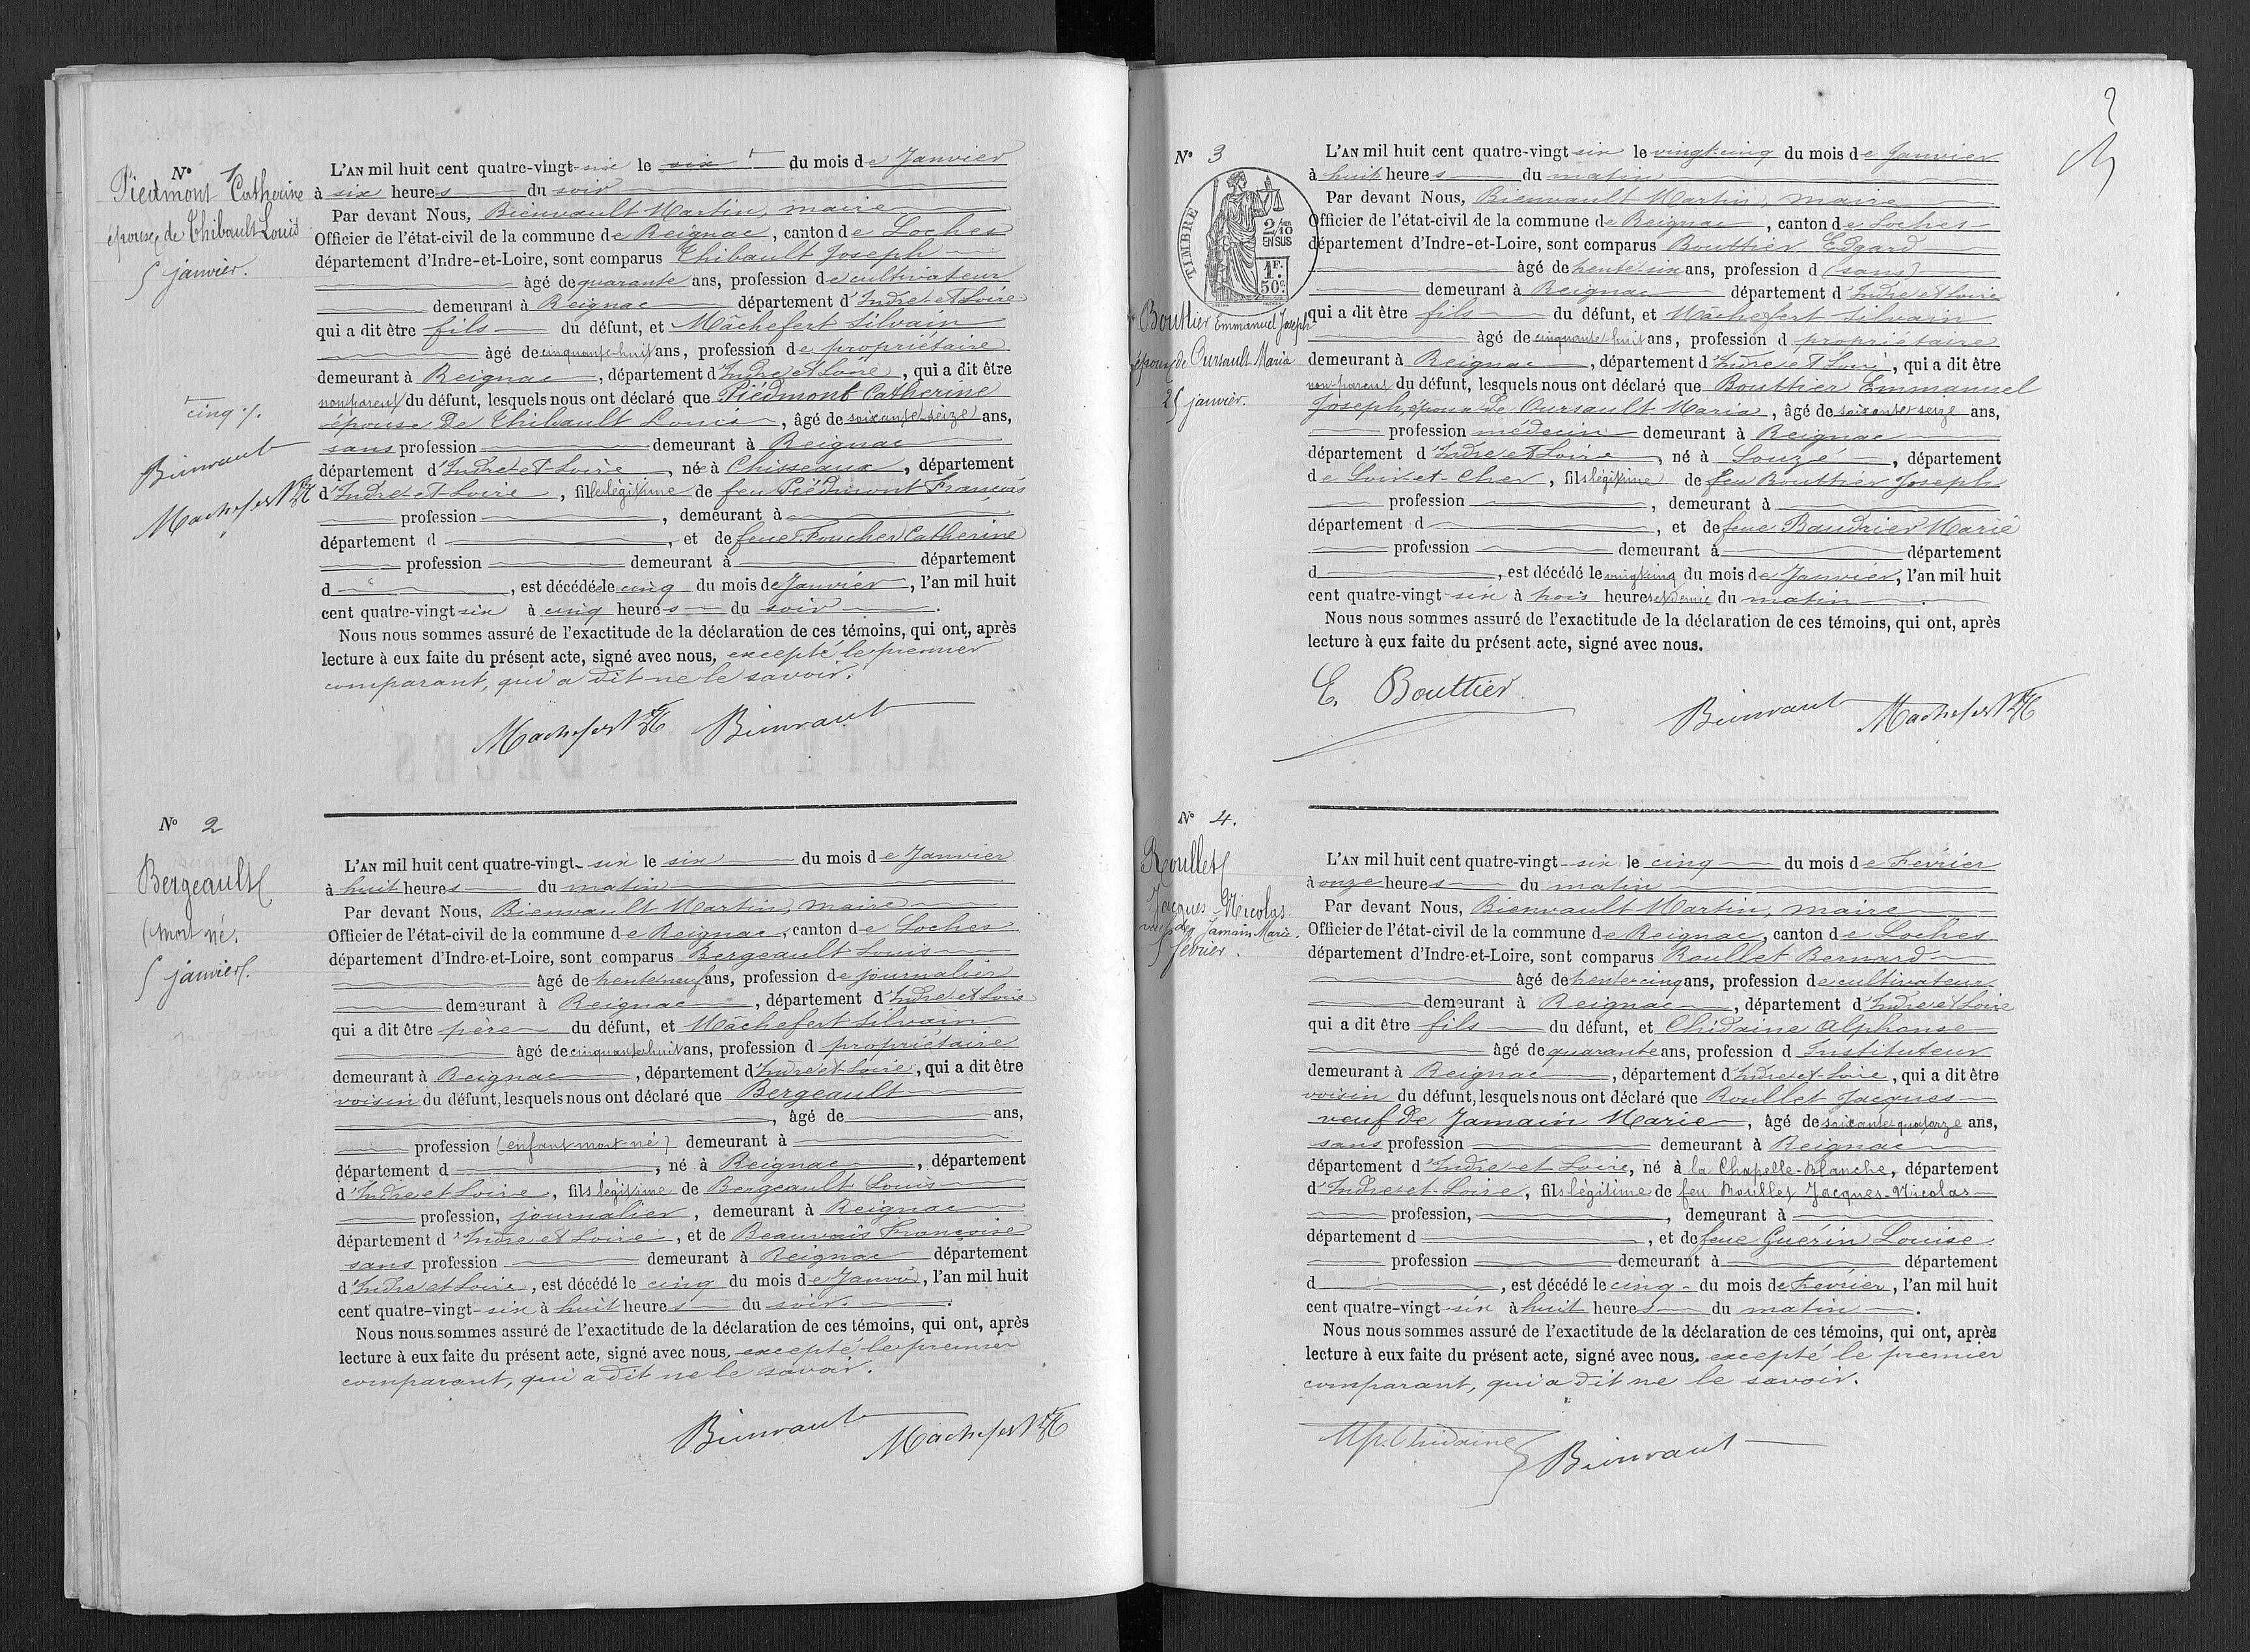 N° 1
Piedmont Catherine
épouse de Thibault Louis
5 janvier.
L'AN mil huit cent quatre-vingt-six le six du mois de Janvier
à six heures du soir
Par devant Nous, Bienvault Martin, maire
Officier de l'état-civil de la commune de Reignac, canton de Loches
département d'Indre-et-Loire, sont comparus Thibault Joseph
âgé de quarante ans, profession de cultivateur
demeurant à Reignac département d'Indre-et-Loire
qui a dit être fils du défunt, et Mâchefert Silvain
âgé de cinquante-huit ans, profession de propriétaire
demeurant à Reignac, département d'Indre et Loire, qui a dit être
non parent du défunt, lesquels nous ont déclaré que Piédmont Catherine
cinq ./.
épouse de Thibault Louis, âgé de soixante seize ans,
sans profession demeurant à Reignac
Bienvault
département d'Indre-et-Loire, née à Chisseaux, département
Machefert
d'Indre-et-Loire, fille légitime de feu Piédmont François
profession, demeurant à
département d, et de feue Foucher Catherine
profession demeurant à département
d, est décédée le cinq du mois de Janvier, l'an mil huit
cent quatre-vingt-six à cinq heures du soir.
Nous nous sommes assuré de l'exactitude de la déclaration de ces témoins, qui ont, après
lecture à eux faite du présent acte, signé avec nous, excepté le premier
comparant, qui a dit ne le savoir.
Machefert Bienvault
N° 2
Bergeault
(mort né.
5 janvier.
L'AN mil huit cent quatre-vingt-six le six du mois de Janvier
à huit heures du matin
Par devant Nous, Bienvault Martin, maire
Officier de l'état-civil de la commune de Reignac, canton de Loches
département d'Indre-et-Loire, sont comparus Bergeault Louis
âgé de trente neuf ans, profession de journalier
demeurant à Reignac, département d'Indre et Loire
qui a dit être père du défunt, et Mâchefert Silvain
âgé de cinquante huit ans, profession d propriétaire
demeurant à Reignac, département d'Indre et Loire, qui a dit être
voisin du défunt, lesquels nous ont déclaré que Bergeault
, âgé de ans,
profession (enfant mort-né) demeurant à
département d, né à Reignac, département
d'Indre et Loire, fils légitime de Bergeault Louis
profession, journalier, demeurant à Reignac
département d'Indre et Loire, et de Beauvais Françoise
sans profession demeurant à Reignac département
d'Indre et Loire, est décédé le cinq du mois de Janvier, l'an mil huit
cent quatre-vingt-six à huit heures du soir.
Nous nous sommes assuré de l'exactitude de la déclaration de ces témoins, qui ont, après
lecture à eux faite du présent acte, signé avec nous, excepté le premier
comparant, qui a dit ne le savoir.
Bienvault Machefert
3
N° 3
TIMBRE
2/10
EN SUS
1F.
50c.
Bouttier Emmanuel Joseph
époux de Oursault Maria
25 janvier.
L'AN mil huit cent quatre-vingt six le vingt-cinq du mois de Janvier
à huit heures du matin
Par devant Nous, Bienvault Martin, maire
Officier de l'état-civil de la commune de Reignac, canton de Loches
département d'Indre-et-Loire, sont comparus Bouttier Edgard
âgé de trente-six ans, profession d (sans)
demeurant à Reignac département d'Indre et Loire
qui a dit être fils du défunt, et Mâchefert Silvain
âgé de cinquante-huit ans, profession d propriétaire
demeurant à Reignac, département d'Indre et Loire, qui a dit être
non-parent du défunt, lesquels nous ont déclaré que Bouttier Emmanuel
Joseph, époux de Oursault Maria, âgé de soixante seize ans,
profession médecin demeurant à Reignac
département d'Indre et Loire, né à Souzé, département
de Loir-et-Cher, fils légitime de feu Bouttier Joseph
profession, demeurant à
département d, et de feue Baudrier Marie
profession demeurant à département
d, est décédé le vingt cinq du mois de Janvier, l'an mil huit
cent quatre-vingt-six à trois heures et demie du matin.
Nous nous sommes assuré de l'exactitude de la déclaration de ces témoins, qui ont, après
lecture à eux faite du présent acte, signé avec nous.
E. Bouttier
Bienvault Machefert
N° 4.
Roullet
Jacques-Nicolas
veuf de Jamain Marie.
5 février.
L'AN mil huit cent quatre-vingt-six le cinq du mois de Février
à onze heures du matin
Par devant Nous, Bienvault Martin, maire
Officier de l'état-civil de la commune de Reignac, canton de Loches
département d'Indre-et-Loire, sont comparus Roullet Bernard
âgé de trente-cinq ans, profession de cultivateur
demeurant à Reignac, département d'Indre et Loire
qui a dit être fils du défunt, et Chidaine Alphonse
âgé de quarante ans, profession d Instituteur
demeurant à Reignac, département d'Indre et Loire, qui a dit être
voisin du défunt, lesquels nous ont déclaré que Roullet Jacques
veuf de Jamain Marie, âgé de soixante quatorze ans,
sans profession demeurant à Reignac
département d'Indre et Loire, né à la Chapelle-Blanche, département
d'Indre-et-Loire, fils légitime de feu Roullet Jacques-Nicolas
profession, demeurant à
département d, et de feue Guérin Louise.
profession demeurant à département
d, est décédé le cinq du mois de Février, l'an mil huit
cent quatre-vingt-six à huit heures du matin.
Nous nous sommes assuré de l'exactitude de la déclaration de ces témoins, qui ont, après
lecture à eux faite du présent acte, signé avec nous, excepté le premier
comparant, qui a dit ne le savoir.
Alph. Chidaine Bienvault